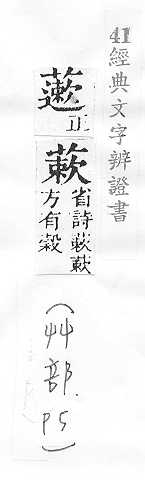 41經典文字辨證書
藗正
蔌省詩蔌蔌
方有穀
(艸部.P5)